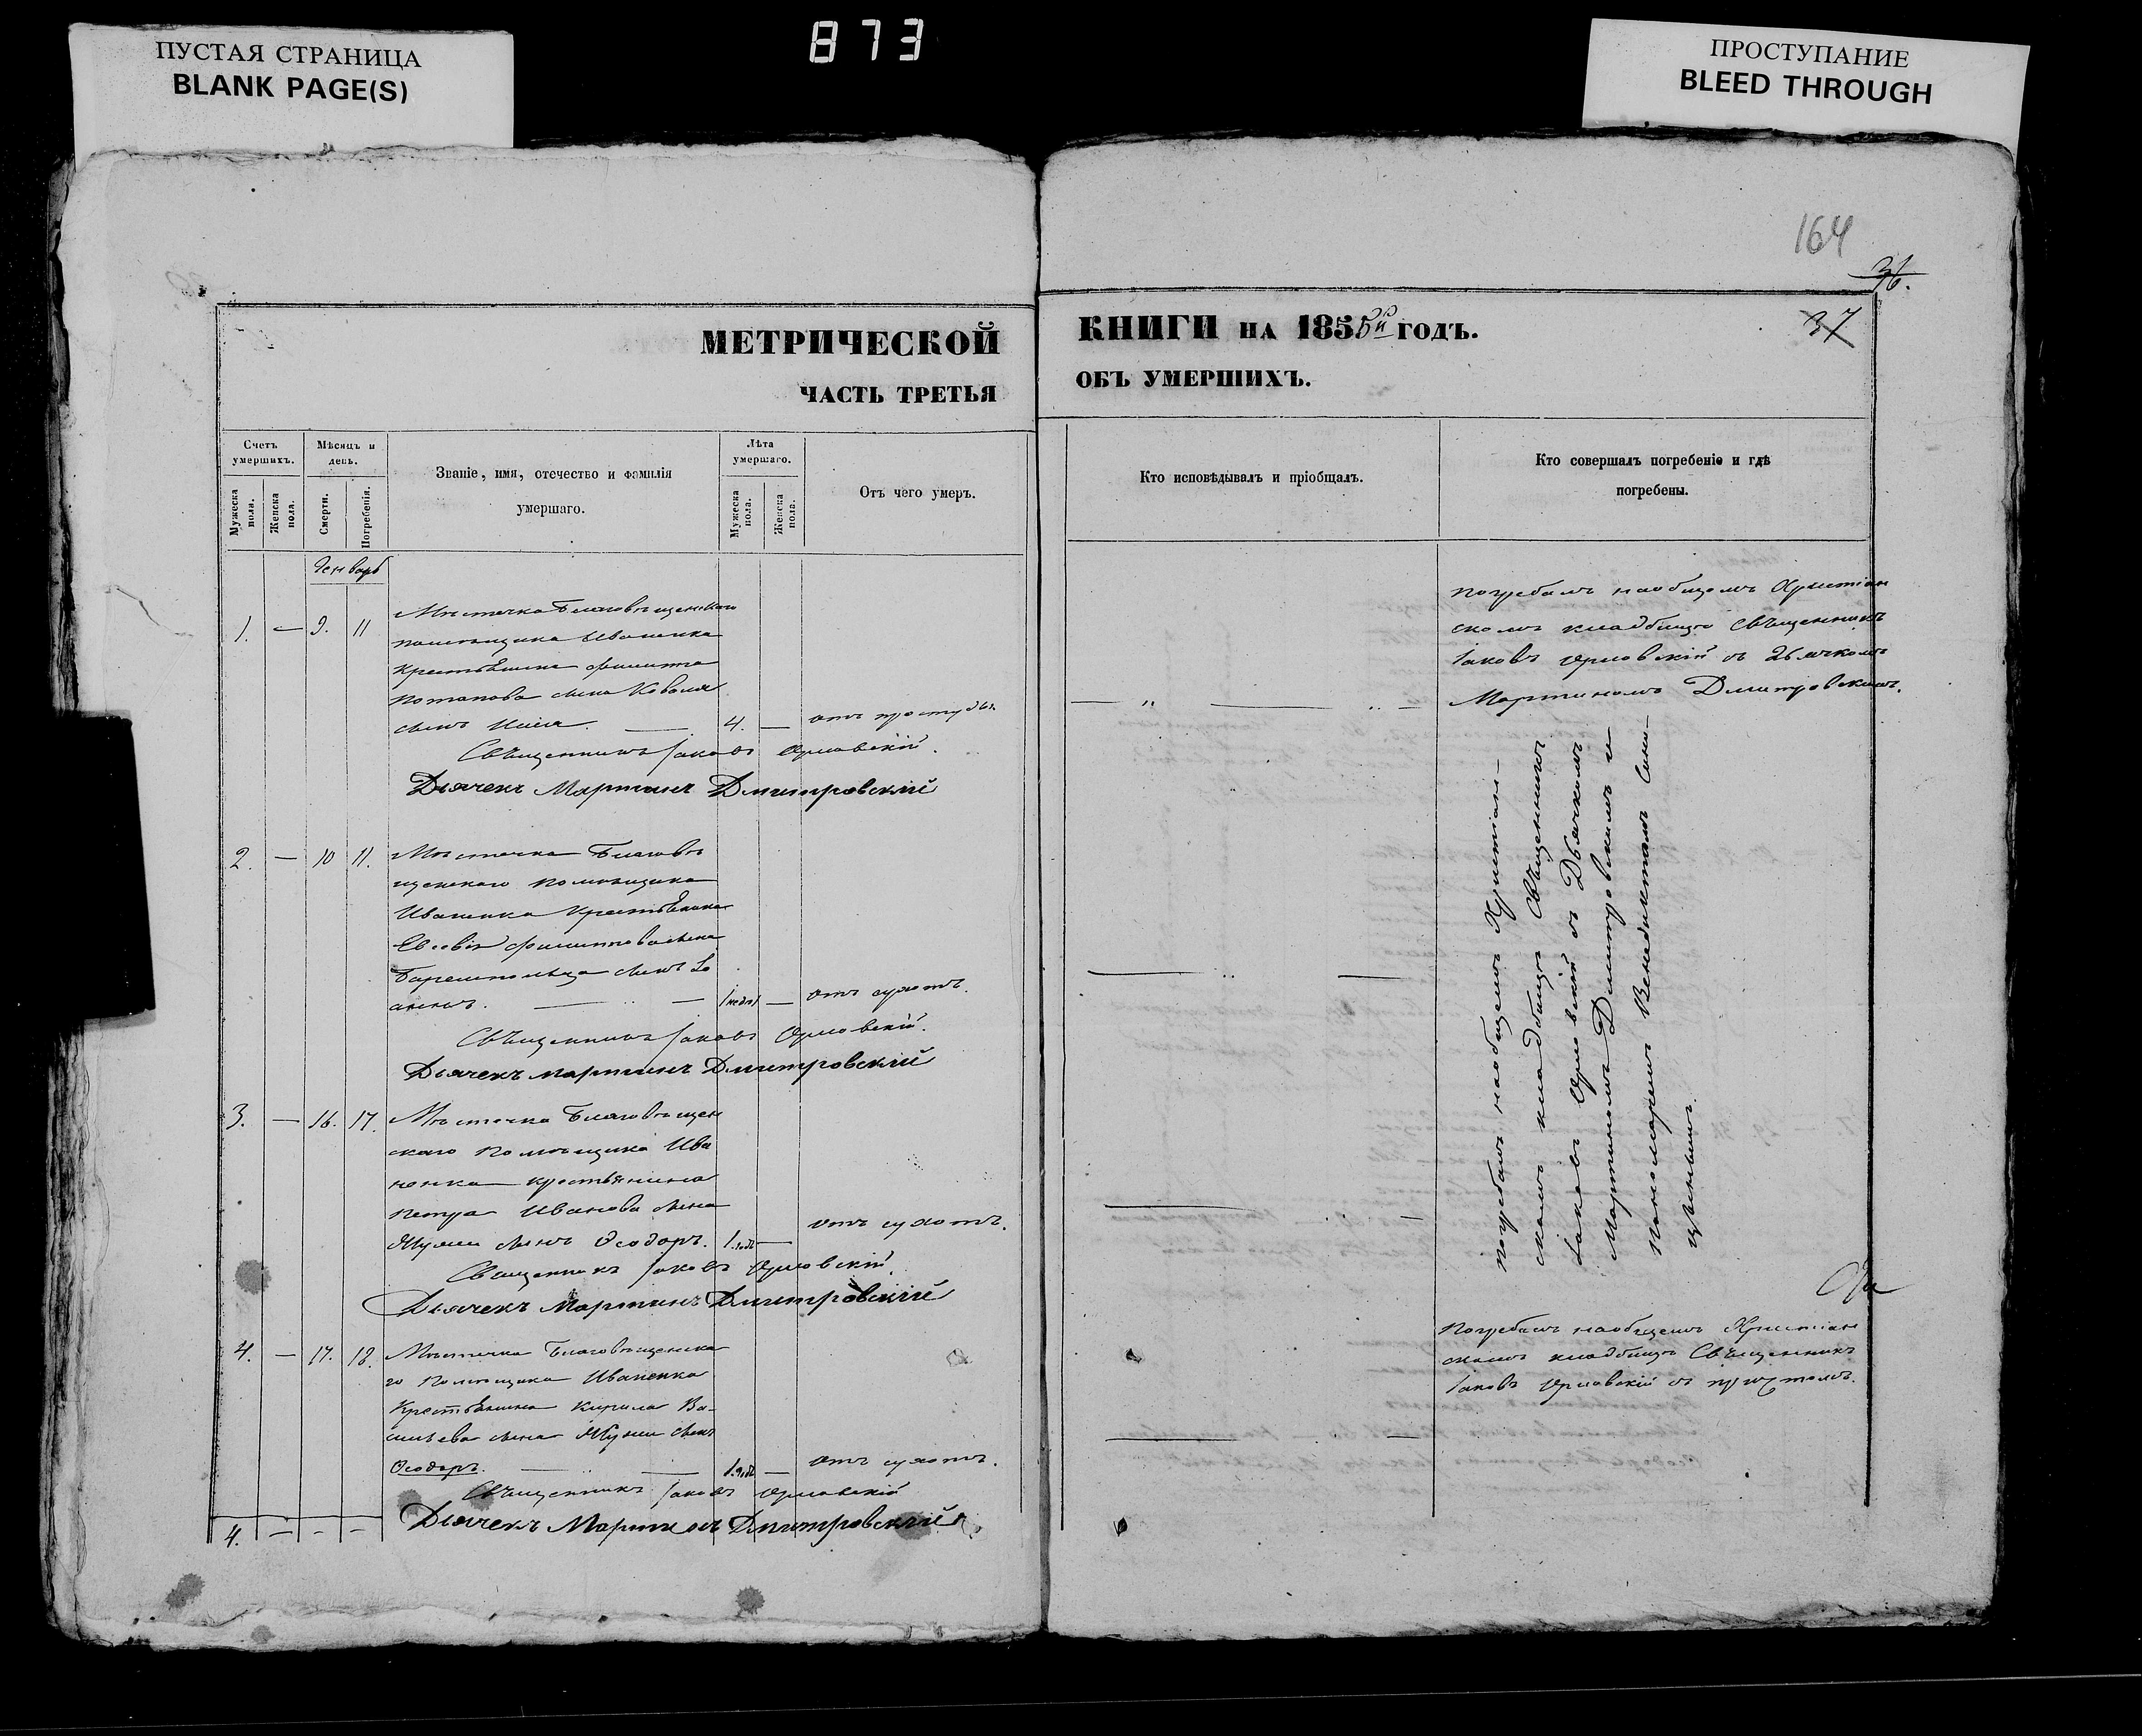 ПУСТАЯ СТРАНИЦА
BLANK PAGE(S)
873
ПРОСТУПАНИЕ
BLEED THROUGH
164
36.
37
МЕТРИЧЕСКОЙ
ЧАСТЬ ТРЕТЬЯ
КНИГИ НА 1855й ГОДЪ.
ОБЪ УМЕРШИХЪ.
Счетъ умершихъ.
Мужеска пола.
Женска пола.
Мѣсяцъ и день.
Смерти.
Погребенія.
Званіе, имя, отечество и фамилія
умершаго.
Лѣта умершаго.
Мужеска пола.
Женска пола.
Отъ чего умеръ.
Кто исповѣдывалъ и пріобщалъ.
Кто совершалъ погребеніе и гдѣ
погребены.
Генварь
1. — 9. 11
Мѣстечка Благовѣщенскаго
помѣщика Иваненка
крестьянина Филиппа
Потапова сына Коваля
сынъ Илія. — 4. — отъ простуды
Священникъ Іаковъ Орловскій.
Дьячекъ Мартинъ Дмитровскій
погребалъ на общемъ Христіан
скомъ кладбищѣ Священникъ
Іаковъ Орловскій съ Дьячкомъ
Мартиномъ Дмитровскимъ.
2. — 10 11.
Мѣстечка Благовѣ
щенскаго помѣщика
Иваненка крестьянина
Евсевія Филиппова сына
сынъ Іо
аннъ. — 1 недѣл — отъ сухотъ.
Священникъ Іаковъ Орловскій.
Дьячекъ Мартинъ Дмитровскій
3. — 16. 17.
Мѣстечка Благовѣщен
скаго помѣщика Ива
ненка крестьянина
Петра Иванова сына
сынъ Ѳеодоръ. 1. годъ — отъ сухотъ.
Священникъ Іаковъ Орловскій.
Дьячекъ Мартинъ Дмитровскій
погребалъ на общемъ Христіан—
скомъ кладбищѣ Священникъ
Іаковъ Орловскій съ Дьячкомъ
Мартиномъ Дмитровскимъ и
Пономаремъ Венедиктомъ
4. — 17. 18.
Мѣстечка Благовѣщенска
го помѣщика Иваненка
крестьянина Кирила Ва-
сильева сына сынъ
Ѳеодоръ. — 1. годъ — отъ сухотъ.
Священникъ Іаковъ Орловскій
Дьячекъ Мартинъ Дмитровскій
Погребалъ на общемъ Христіан
скомъ кладбищѣ Священникъ
Іаковъ Орловскій съ причтомъ.
4. — - —